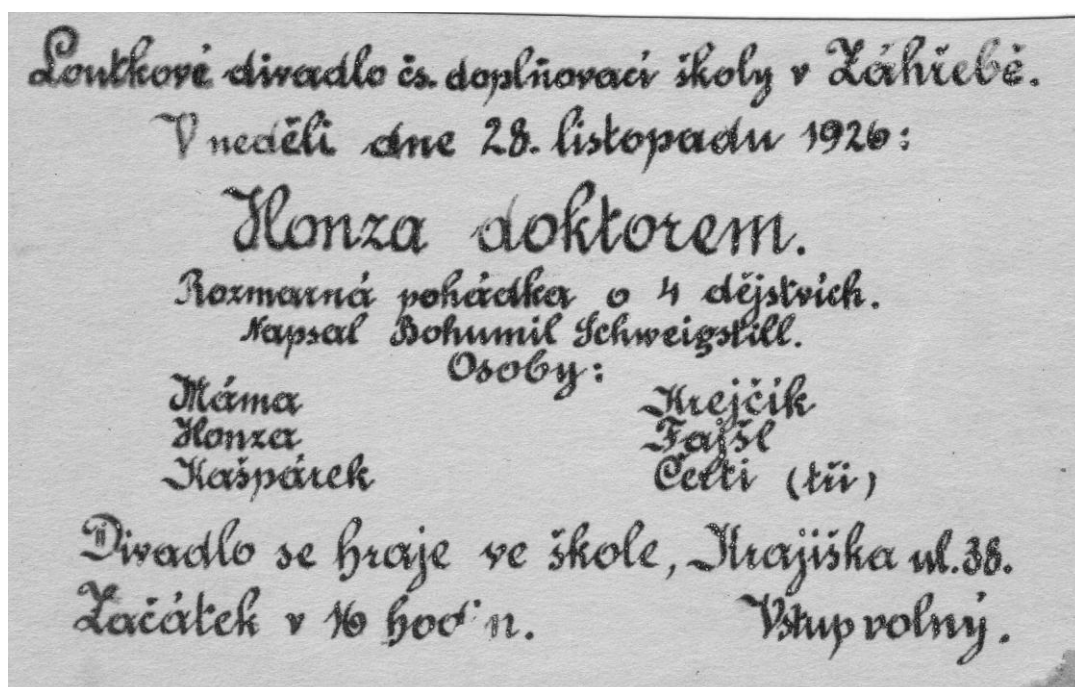 Loutkové divadlo čs. doplňovací školy v Záhřebě.
V neděli dne 28. listopadu 1926:
Honza doktorem.
Rozmarná pohádka o 4 dějstvích.
Napsal Bohumil Schweigstill.
Osoby:
Máma Krejčík
Honza Fajfl
Kašpárek Čerti (tři)
Divadlo se hraje ve škole, Krajiška ul. 38.
Začátek v 16 hodin. Vstup volný.